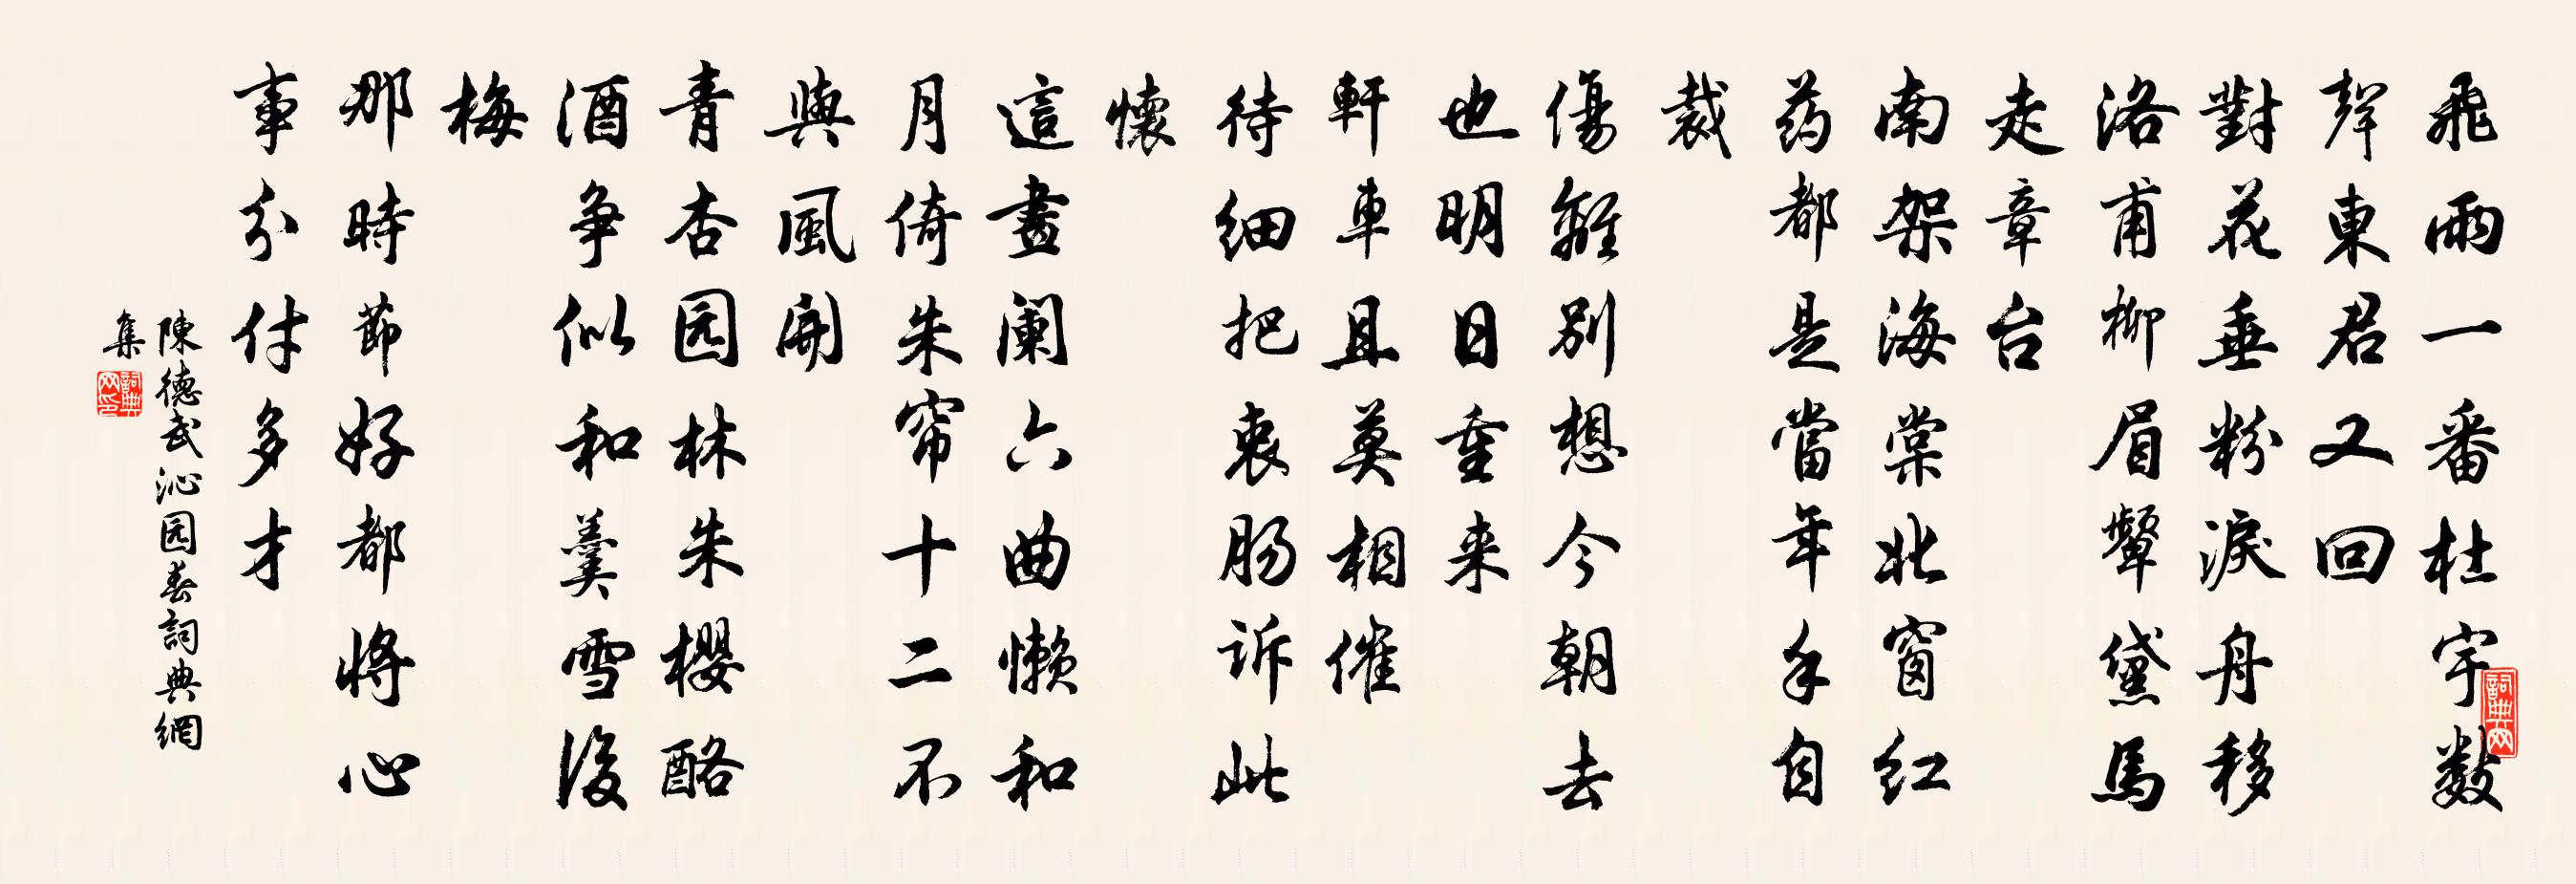 飛雨一番杜宇数
聲東君又回
對花垂粉淚舟移
洛甫柳眉顰黛馬
走章台
南架海棠北窗紅
药都是當年手自
裁
傷離別想今朝去
也明日重来
軒車且莫相催
待细把衷肠诉此
懷
這畫阑六曲懒和
月倚朱帘十二不
與風開
青杏园林朱櫻酪
酒争似和羹雪後
梅
那時節好都將心
事分付多才
陳德武沁园春詞典網
集
詞典网
詞典网印